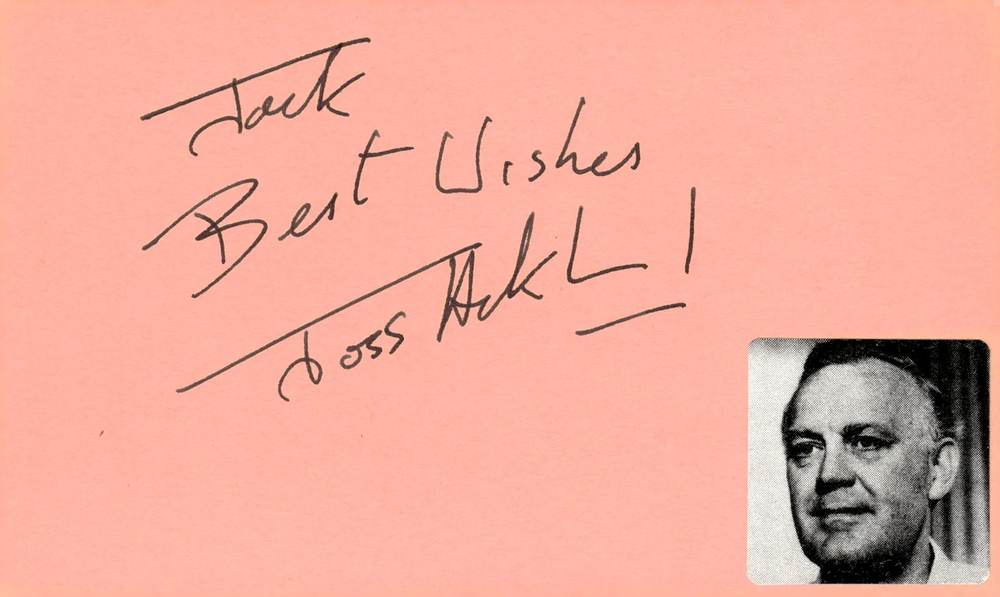 Jack
Best Wishes
Joss Ackl!